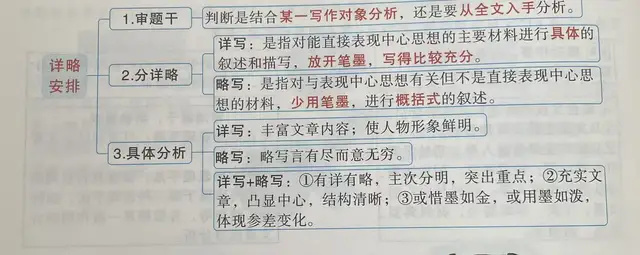 1.审题干
判断是结合某一写作对象分析，还是要从全文入手分析。
详略
安排
2.分详略
详写：是指对能直接表现中心思想的主要材料进行具体的
叙述和描写，放开笔墨，写得比较充分。
略写：是指对与表现中心思想有关但不是直接表现中心思
想的材料，少用笔墨，进行概括式的叙述。
3.具体分析
详写：丰富文章内容；使人物形象鲜明。
略写：略写言有尽而意无穷。
详写+略写：①有详有略，主次分明，突出重点；②充实文
章，凸显中心，结构清晰；③或惜墨如金，或用墨如泼，
体现参差变化。